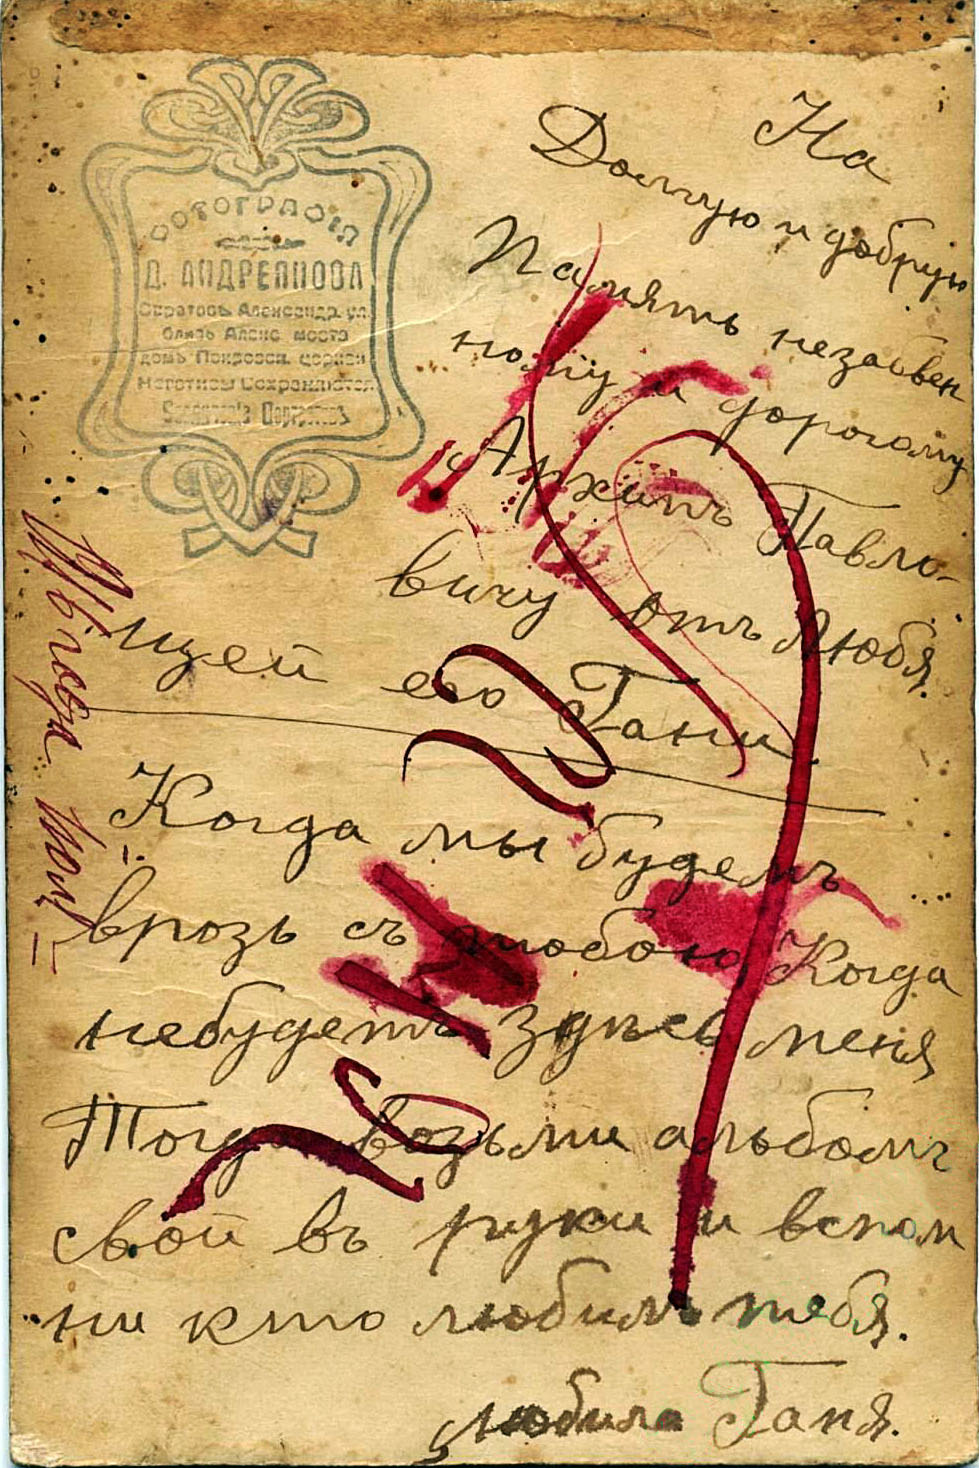 ФОТОГРАФІЯ
Д. АНДРЕЯНОВА
Саратовъ Александр. ул.
близь Алекс моста
домъ Покровск. церкви
Негативы Сохраняются
На
Долгую и добрую
Память незабвен
ному и дорогому
Архипъ Павло-
вичу отъ Любя
щей его Гани
Когда мы будемъ
врозь съ тобою Когда
небудетъ здъсь меня
Тогда возьми альбомъ
свой въ руки и вспом
ни кто любилъ тебя.
любила Ганя.
года